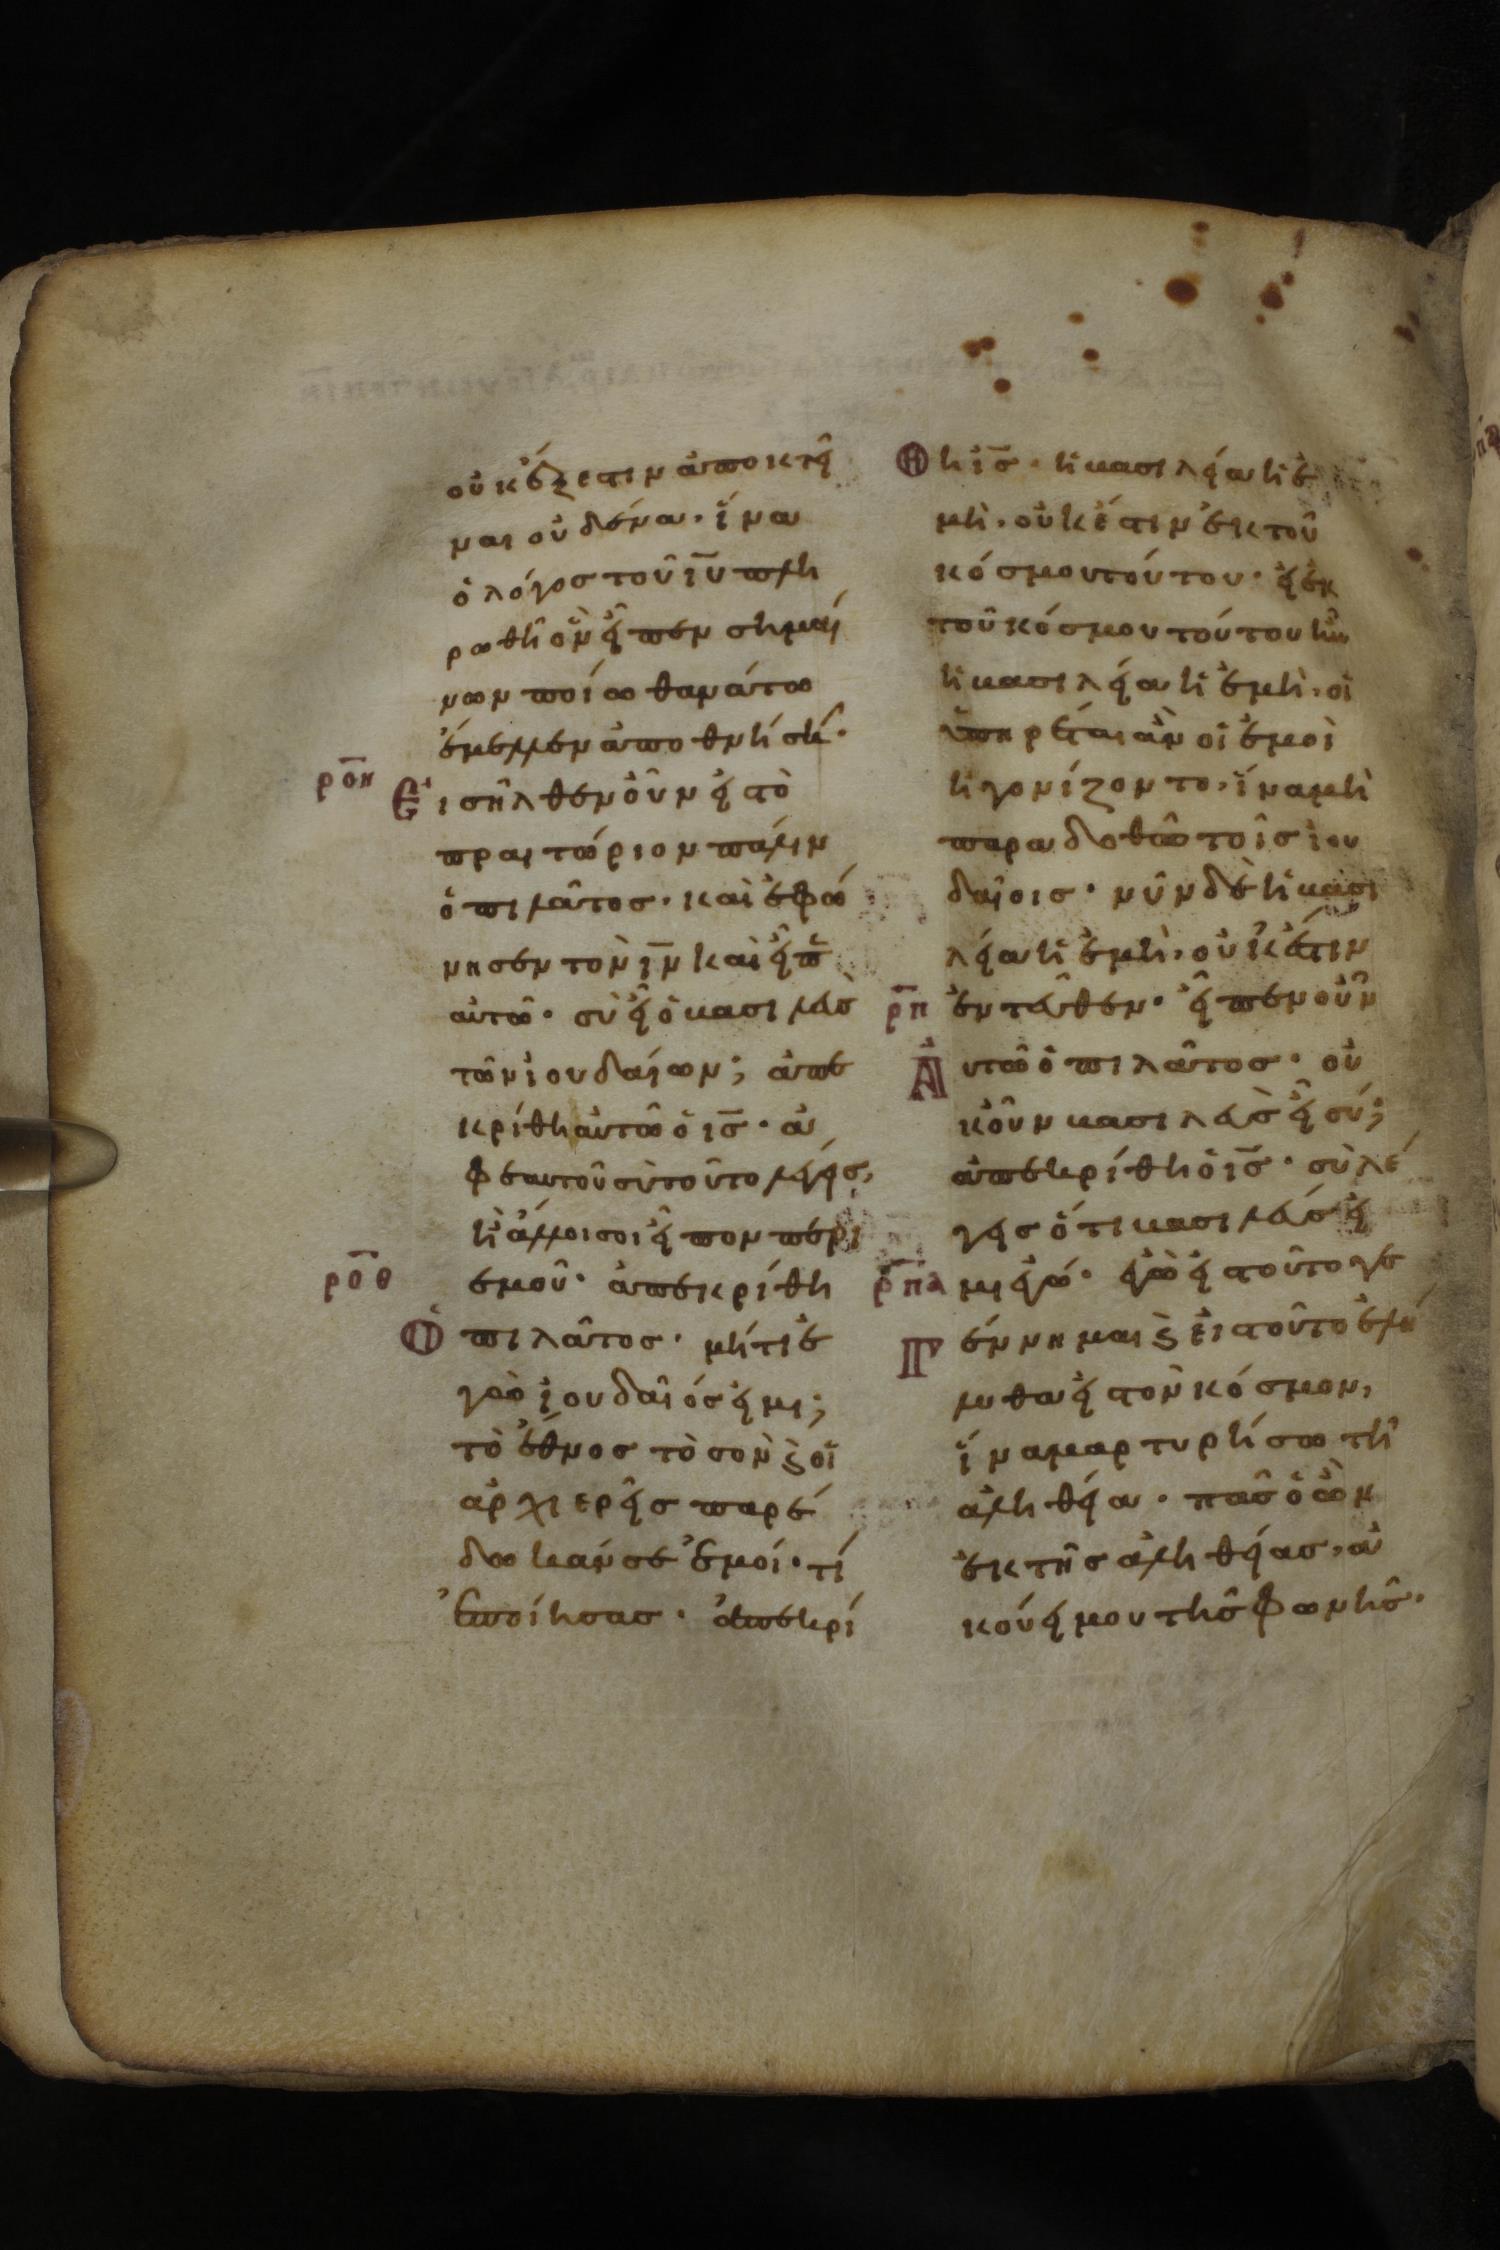 οὐκ ἔξεστιν ἀποκτεῖ
ναι οὐδένα· ἵνα
ὁ λόγος τοῦ ἰ̅υ̅ πλη
ρωθῆ ὃν εἶπεν σημαί
νων ποίω θανάτω
ἔμελλεν ἀποθνήσκειν·
ρ̅ο̅η̅
Εἰσῆλθεν οὖν εἰς τὸ
πραιτώριον πάλιν
ὁ πιλᾶτος· καὶ ἐφώ
νησεν τὸν ἰ̅ν̅ καὶ εἶπ
αὐτῶ· σὺ εἶ ὁ βασιλεὺς
τῶν ἰουδαίων; ἀπε
κρίθη αὐτῶ ὁ ἰ̅ς̅· ἀ
φεαυτοῦ σὺ τοῦτο λέγεις,
ἢ ἄλλοι σοι εἶπον περὶ
ρ̅ο̅θ̅
ἐμοῦ· ἀπεκρίθη
Ὁ πιλᾶτος· μήτι ἐ
γὼ ἰουδαῖός εἰμι;
τὸ ἔθνος τὸ σὸν ϗ οἱ
ἀρχιερεῖς παρέ
δωκάν σε ἐμοί· τί
ἐποίησας· ἀπεκρί
Θη ἰ̅ς̅· ἡ βασιλεία ἡ ἐ
μὴ· οὐκ ἔστιν ἐκ τοῦ
κόσμου τούτου· εἰ ἐκ
τοῦ κόσμου τούτου ἦν
ἡ βασιλεία ἡ ἐμὴ, οἱ
ὑπηρέται ἂν οἱ ἐμοὶ
ἠγονίζοντο, ἵνα μὴ
παραδοθῶ τοῖς ἰου
δαίοις· νῦν δὲ ἡ βασι
λεία ἡ ἐμὴ, οὐκ ἔστιν
ρ̅π̅
ἐντεῦθεν· εἶπεν οὖν
Αὐτῶ ὁ πιλᾶτος· οὐ
κοῦν βασιλεὺς εἶ σύ;
ἀπεκρίθη ὁ ἰ̅ς̅· σὺ λέ
γεις ὅτι βασιλεύς εἰ
ρ̅π̅α̅
μι ἐγώ· ἐγὼ εἰς τοῦτο γε
Γέννημαι ϗ εἰς τοῦτο ἐλή
λυθα εἰς τὸν κόσμον,
ἵνα μαρτυρήσω τῆ
ἀληθεία· πᾶς ὁ ὢν
ἐκ τῆς ἀληθείας, ἀ
κούει μου τῆς φωνῆς·